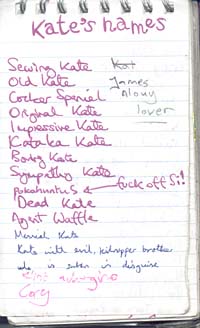 Kate's names
Sewing Kate
Kat
Old Kate
James
Cocker Spaniel
lover
Original Kate
Impressive Kate
Kataka Kate
Boring Kate
Sympathy Kate
pokohuntus
fuck off Si!
Dead Kate
Agent Waffle
Kate with evil, kidnapper brother
who is in disguise
Corey